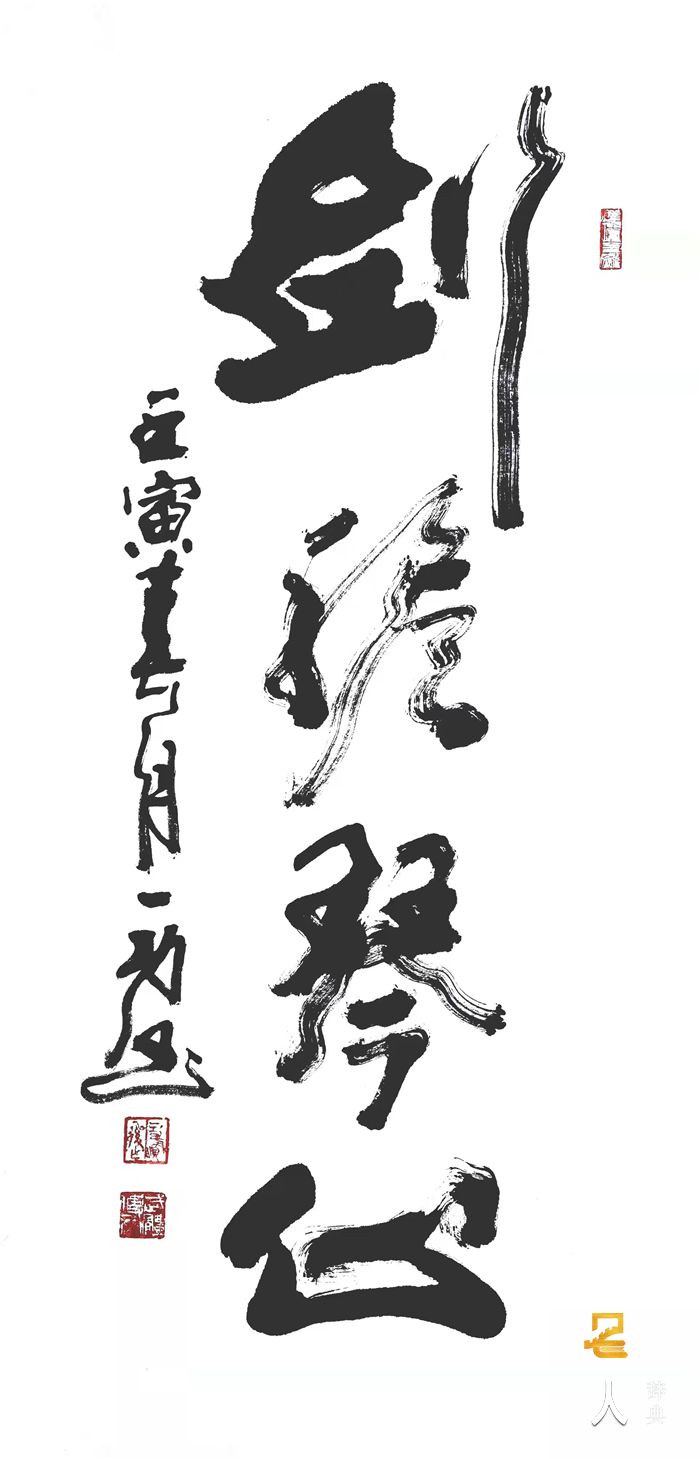 剑胆琴心
壬寅春月一功书
人
辞典